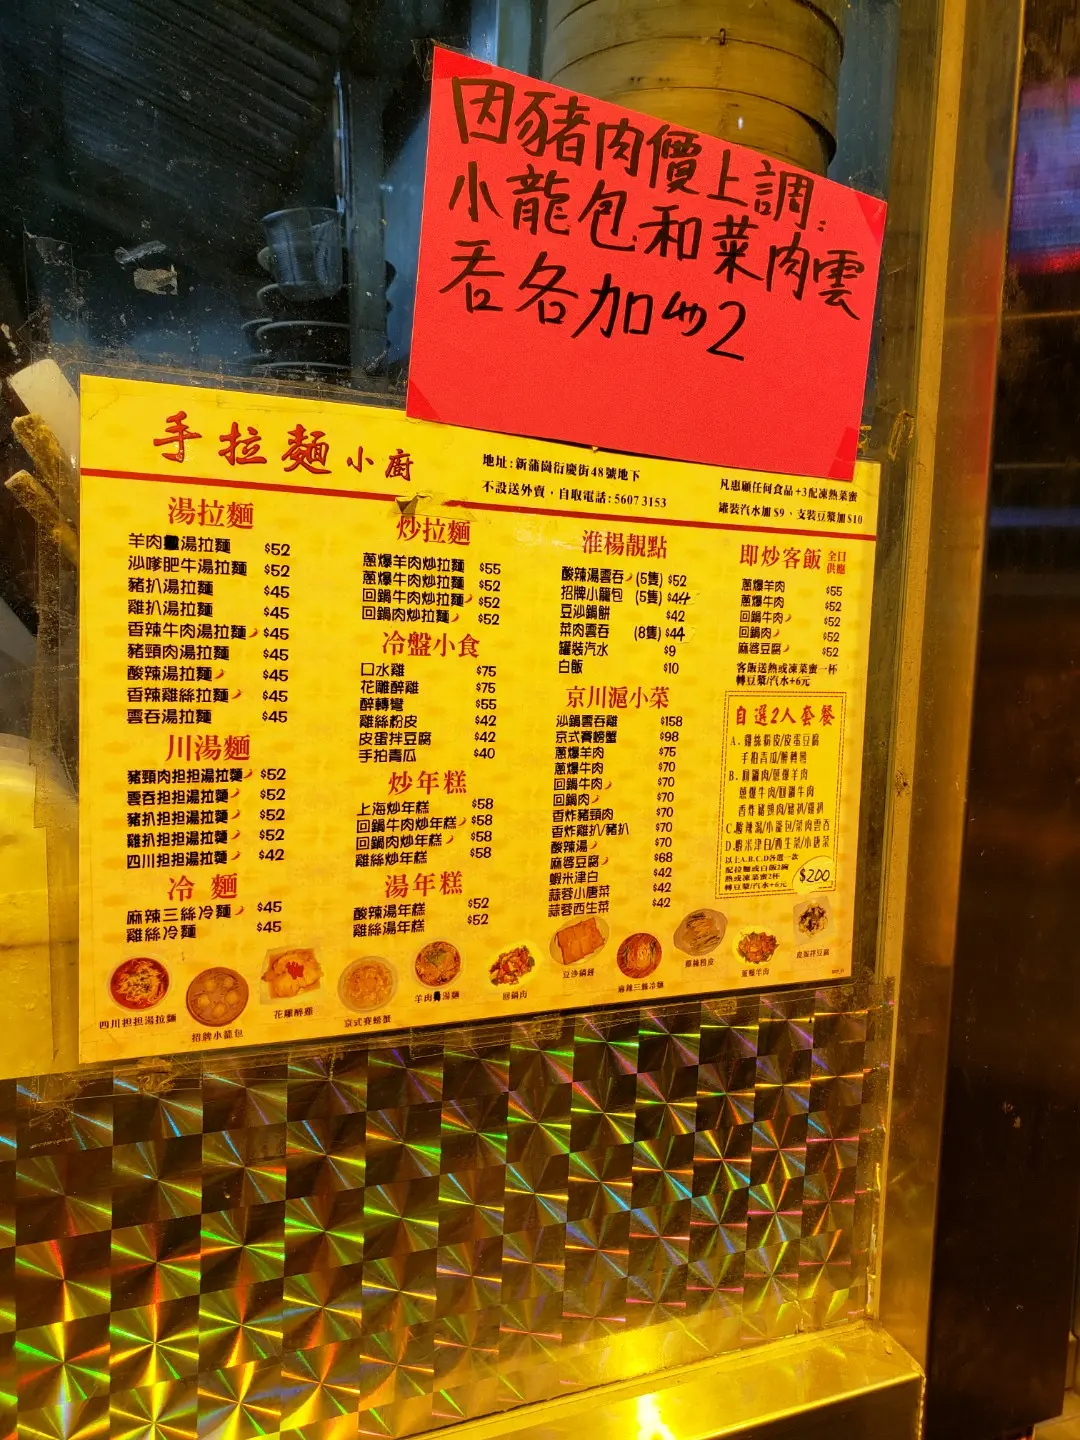 因豬肉價上調:
小龍包和菜肉雲
吞各加$2
手拉麵小廚
地址:新蒲崗衍慶街48號地下
不設送外賣，自取電話:5607 3153
凡惠顧任何食品+3配凍熱菜蜜
罐裝汽水加$9、支裝豆漿加$10
湯拉麵
羊肉 湯拉麵 $52
沙嗲肥牛湯拉麵 $52
豬扒湯拉麵 $45
雞扒湯拉麵 $45
香辣牛肉湯拉麵 $45
豬頸肉湯拉麵 $45
酸辣湯拉麵 $45
香辣雞絲拉麵 $45
雲吞湯拉麵 $45
川湯麵
豬頸肉担担湯拉麵 $52
雲吞担担湯拉麵 $52
豬扒担担湯拉麵 $52
雞扒担担湯拉麵 $52
四川担担湯拉麵 $42
冷麵
麻辣三絲冷麵 $45
雞絲冷麵 $45
炒拉麵
蔥爆羊肉炒拉麵 $55
蔥爆牛肉炒拉麵 $52
回鍋牛肉炒拉麵 $52
回鍋肉炒拉麵 $52
冷盤小食
口水雞 $75
花雕醉雞 $75
醉轉彎 $55
雞絲粉皮 $42
皮蛋拌豆腐 $42
手拍青瓜 $40
炒年糕
上海炒年糕 $58
回鍋牛肉炒年糕 $58
回鍋肉炒年糕 $58
雞絲炒年糕 $58
湯年糕
酸辣湯年糕 $52
雞絲湯年糕 $52
淮楊靚點
酸辣湯雲吞 (5隻) $52
招牌小籠包 (5隻) $44
豆沙鍋餅 $42
菜肉雲吞 (8隻) $44
罐裝汽水 $9
白飯 $10
京川滬小菜
沙鍋雲吞雞 $158
京式賽螃蟹 $98
蔥爆羊肉 $75
蔥爆牛肉 $70
回鍋牛肉 $70
回鍋肉 $70
香炸豬頸肉 $70
香炸雞扒/豬扒 $70
酸辣湯 $70
麻婆豆腐 $68
蝦米津白 $42
蒜蓉小唐菜 $42
蒜蓉西生菜 $42
即炒客飯 全日供應
蔥爆羊肉 $55
蔥爆牛肉 $52
回鍋牛肉 $52
回鍋肉 $52
麻婆豆腐 $52
客飯送熱或凍菜蜜一杯
轉豆漿/汽水+6元
自選2人套餐
A. 雞絲粉皮/皮蛋豆腐
手拍青瓜/醉轉彎
B. 回鍋肉/蔥爆羊肉
蔥爆牛肉/回鍋牛肉
香炸豬頸肉/豬扒/雞扒
C. 酸辣湯/小籠包/菜肉雲吞
D. 蝦米津白/西生菜/小唐菜
以上A.B.C.D各選一款
配拉麵或白飯2碗
熱或凍菜蜜2杯
轉豆漿/汽水+6元
$200
四川担担湯拉麵
招牌小籠包
花雕醉雞
京式賽螃蟹
羊肉 湯麵
回鍋肉
豆沙鍋餅
麻辣三絲冷麵
雞絲粉皮
蔥爆羊肉
皮蛋拌豆腐